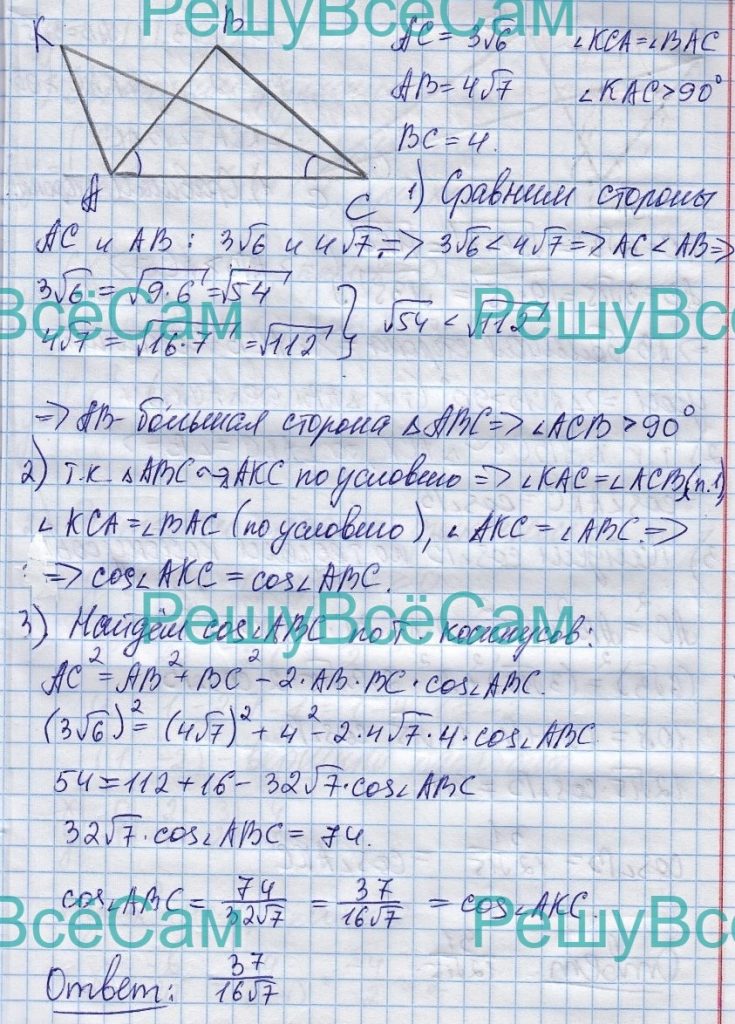 РешуВсёСам
K B AC = 3√6 ∠KCA = ∠BAC
AB = 4√7 ∠KAC > 90°
BC = 4.
A C 1) Сравним стороны
AC и AB: 3√6 и 4√7 => 3√6 < 4√7 => AC < AB =>
3√6 = √9·6 = √54
ВсёСам РешуВсё
4√7 = √16·7 = √112 } √54 < √112
=> AB - большая сторона △ABC => ∠ACB > 90°
2) т.к. △ABC ~ △AKC по условию => ∠KAC = ∠ACB (п.1)
∠KCA = ∠BAC (по условию), ∠AKC = ∠ABC =>
=> cos∠AKC = cos∠ABC.
РешуВсёСам
3) Найдём cos∠ABC по т. косинусов:
AC² = AB² + BC² - 2·AB·BC·cos∠ABC.
(3√6)² = (4√7)² + 4² - 2·4√7·4·cos∠ABC
54 = 112 + 16 - 32√7·cos∠ABC
32√7·cos∠ABC = 74.
cos∠ABC = 74/32√7 = 37/16√7 = cos∠AKC.
ВсёСам РешуВсё
Ответ: 37/16√7